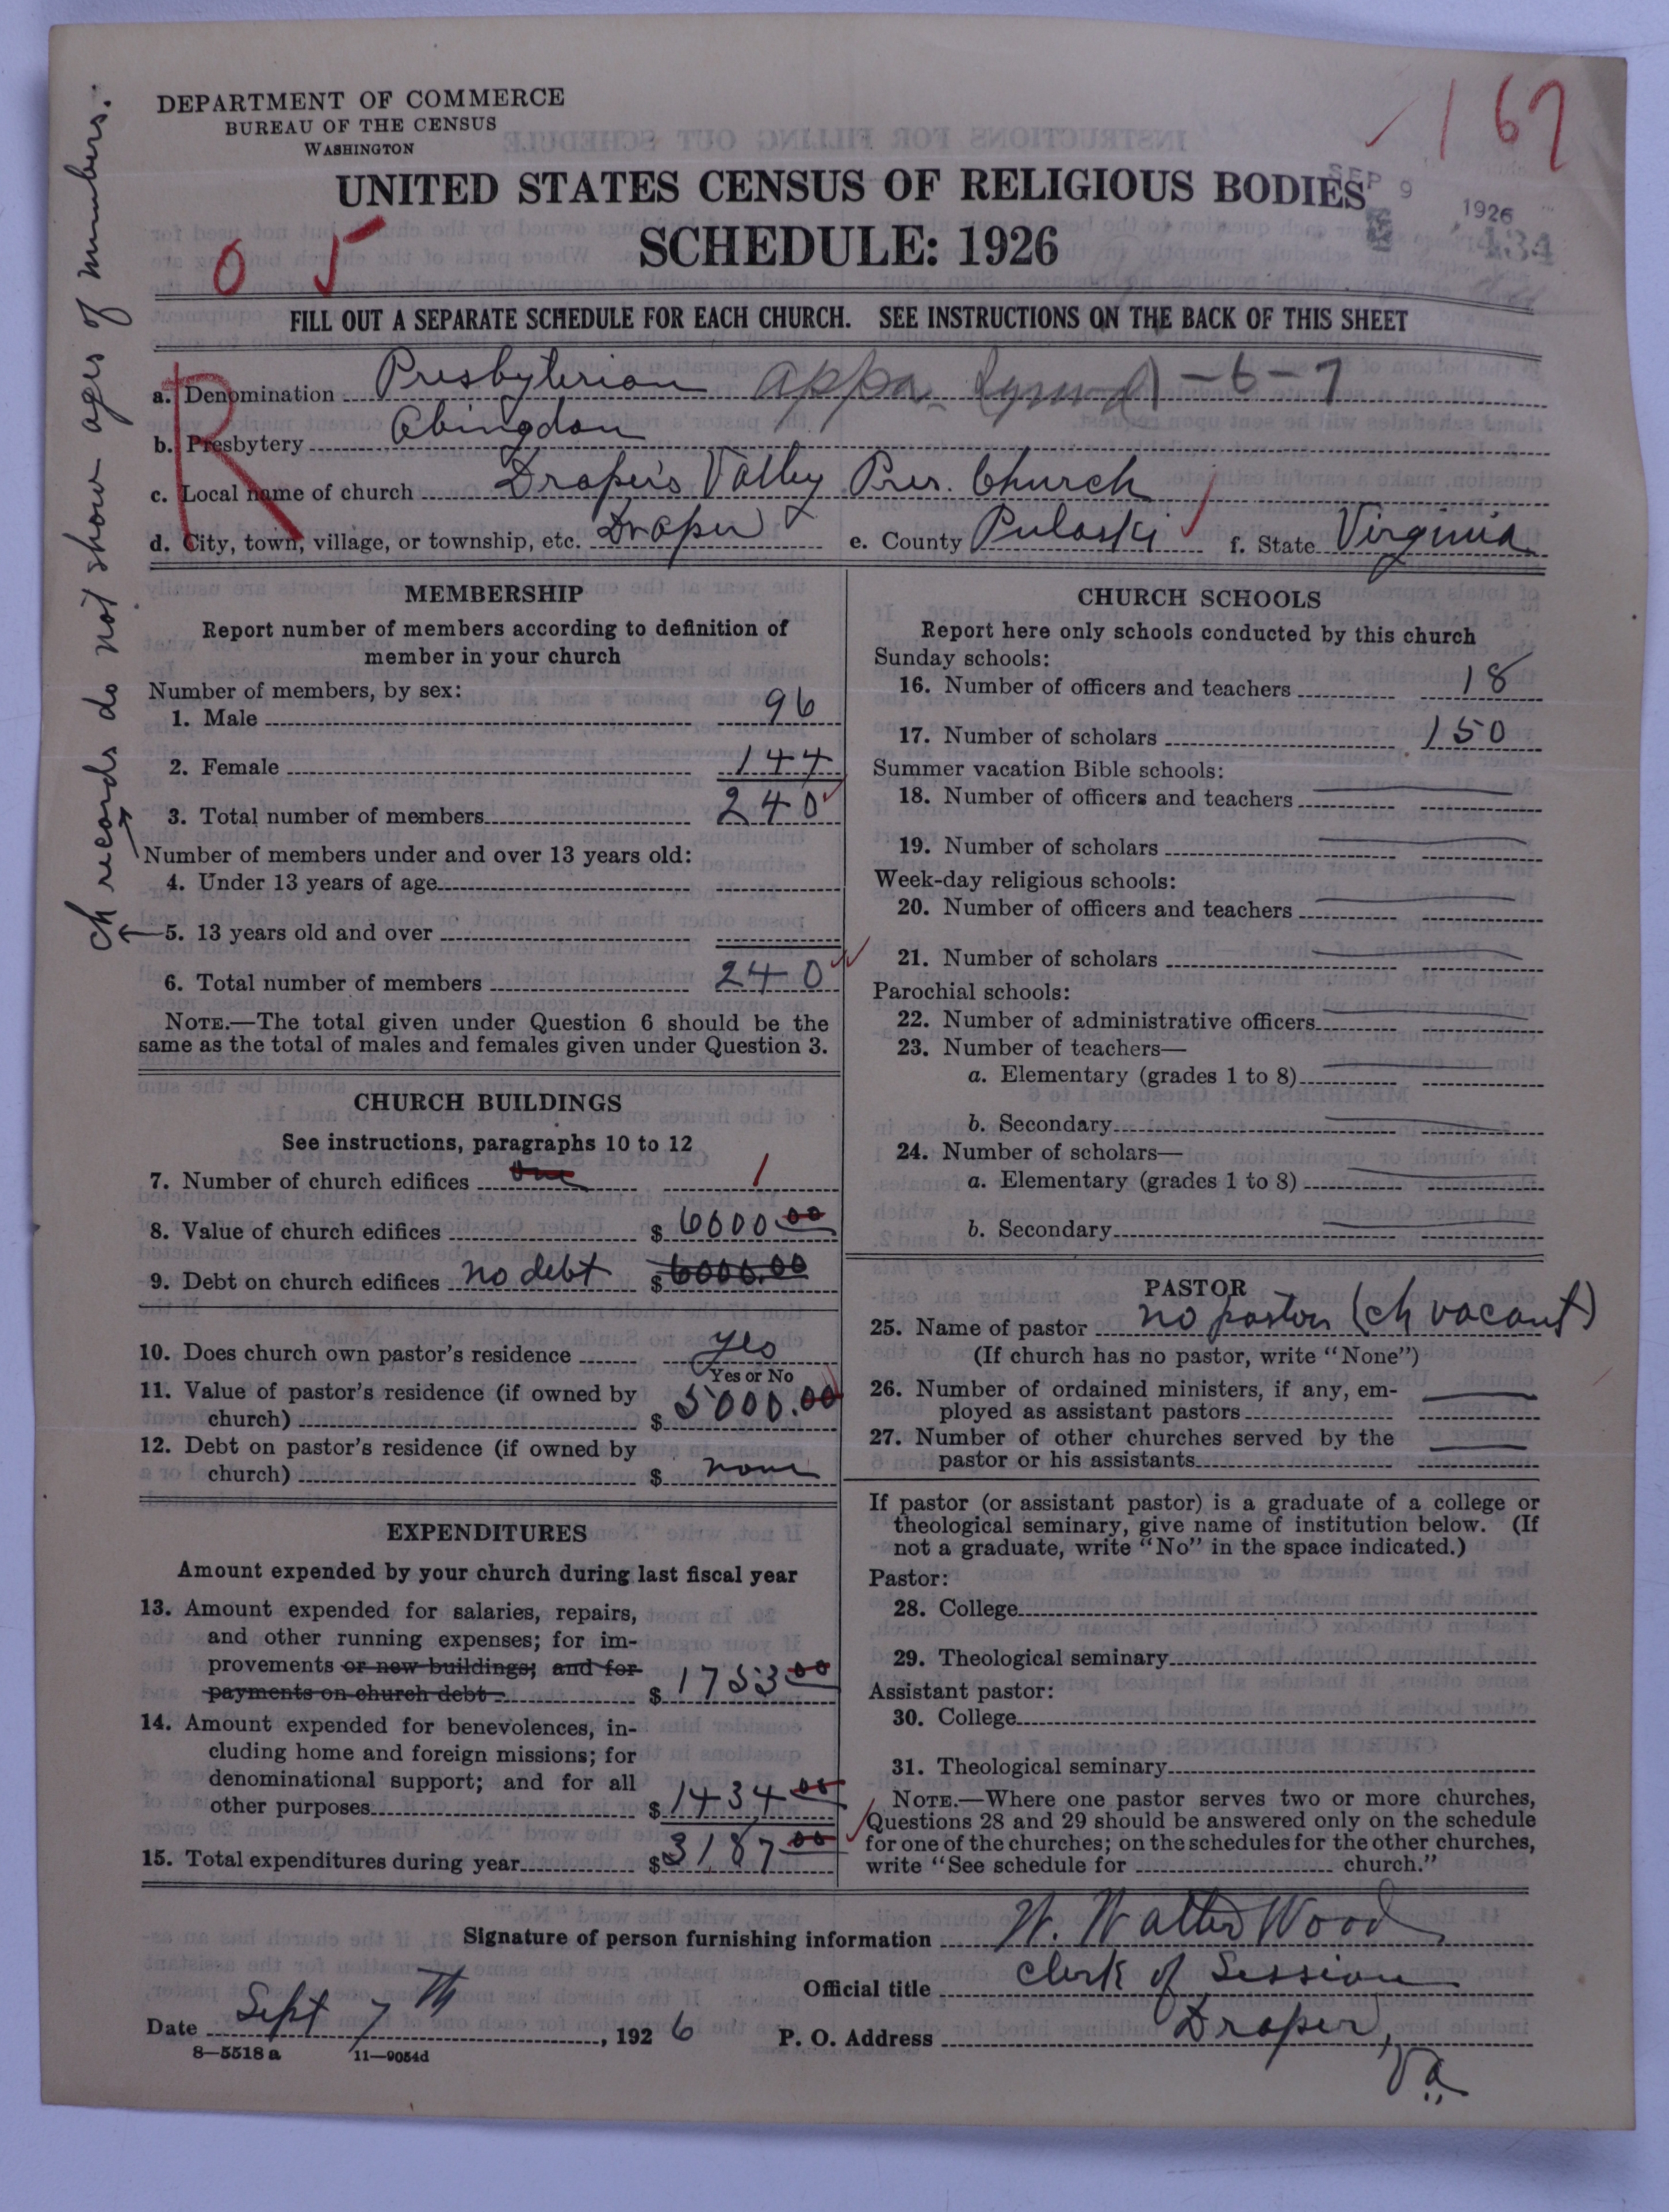 DEPARTMENT OF COMMERCE
BUREAU OF THE CENSUS
WASHINGTON
167
UNITED STATES CENSUS OF RELIGIOUS BODIES
SEP 9 1926
SCHEDULE: 1926
434
0 5
FILL OUT A SEPARATE SCHEDULE FOR EACH CHURCH. SEE INSTRUCTIONS ON THE BACK OF THIS SHEET
R
ch records do not show ages of members.
a. Denomination Presbyterian Appa. 1-6-7
b. Presbytery Abingdon
c. Local name of church Draper's Valley Pres. Church
d. City, town, village, or township, etc. Draper e. County Pulaski f. State Virginia
MEMBERSHIP
Report number of members according to definition of
member in your church
Number of members, by sex:
1. Male 96
2. Female 144
3. Total number of members 240
Number of members under and over 13 years old:
4. Under 13 years of age
5. 13 years old and over
6. Total number of members 240
NOTE.—The total given under Question 6 should be the
same as the total of males and females given under Question 3.
CHURCH BUILDINGS
See instructions, paragraphs 10 to 12
7. Number of church edifices one 1
8. Value of church edifices $6000.00
9. Debt on church edifices no debt $6000.00
10. Does church own pastor's residence yes
Yes or No
11. Value of pastor's residence (if owned by
church) $5000.00
12. Debt on pastor's residence (if owned by
church) $ none
EXPENDITURES
Amount expended by your church during last fiscal year
13. Amount expended for salaries, repairs,
and other running expenses; for im-
provements or new buildings; and for
payments on church debt $1753.00
14. Amount expended for benevolences, in-
cluding home and foreign missions; for
denominational support; and for all
other purposes $1434.00
15. Total expenditures during year $3187.00
CHURCH SCHOOLS
Report here only schools conducted by this church
Sunday schools:
16. Number of officers and teachers 18
17. Number of scholars 150
Summer vacation Bible schools:
18. Number of officers and teachers
19. Number of scholars
Week-day religious schools:
20. Number of officers and teachers
21. Number of scholars
Parochial schools:
22. Number of administrative officers
23. Number of teachers—
a. Elementary (grades 1 to 8)
b. Secondary
24. Number of scholars—
a. Elementary (grades 1 to 8)
b. Secondary
PASTOR
25. Name of pastor no pastor (ch vacant)
(If church has no pastor, write "None")
26. Number of ordained ministers, if any, em-
ployed as assistant pastors
27. Number of other churches served by the
pastor or his assistants
If pastor (or assistant pastor) is a graduate of a college or
theological seminary, give name of institution below. (If
not a graduate, write "No" in the space indicated.)
Pastor:
28. College
29. Theological seminary
Assistant pastor:
30. College
31. Theological seminary
NOTE.—Where one pastor serves two or more churches,
Questions 28 and 29 should be answered only on the schedule
for one of the churches; on the schedules for the other churches,
write "See schedule for church."
Signature of person furnishing information W. Walter Wood
Official title Clerk of Session
Date Sept 7th, 1926 P. O. Address Draper,
Va.
8—5518 a 11—9054d